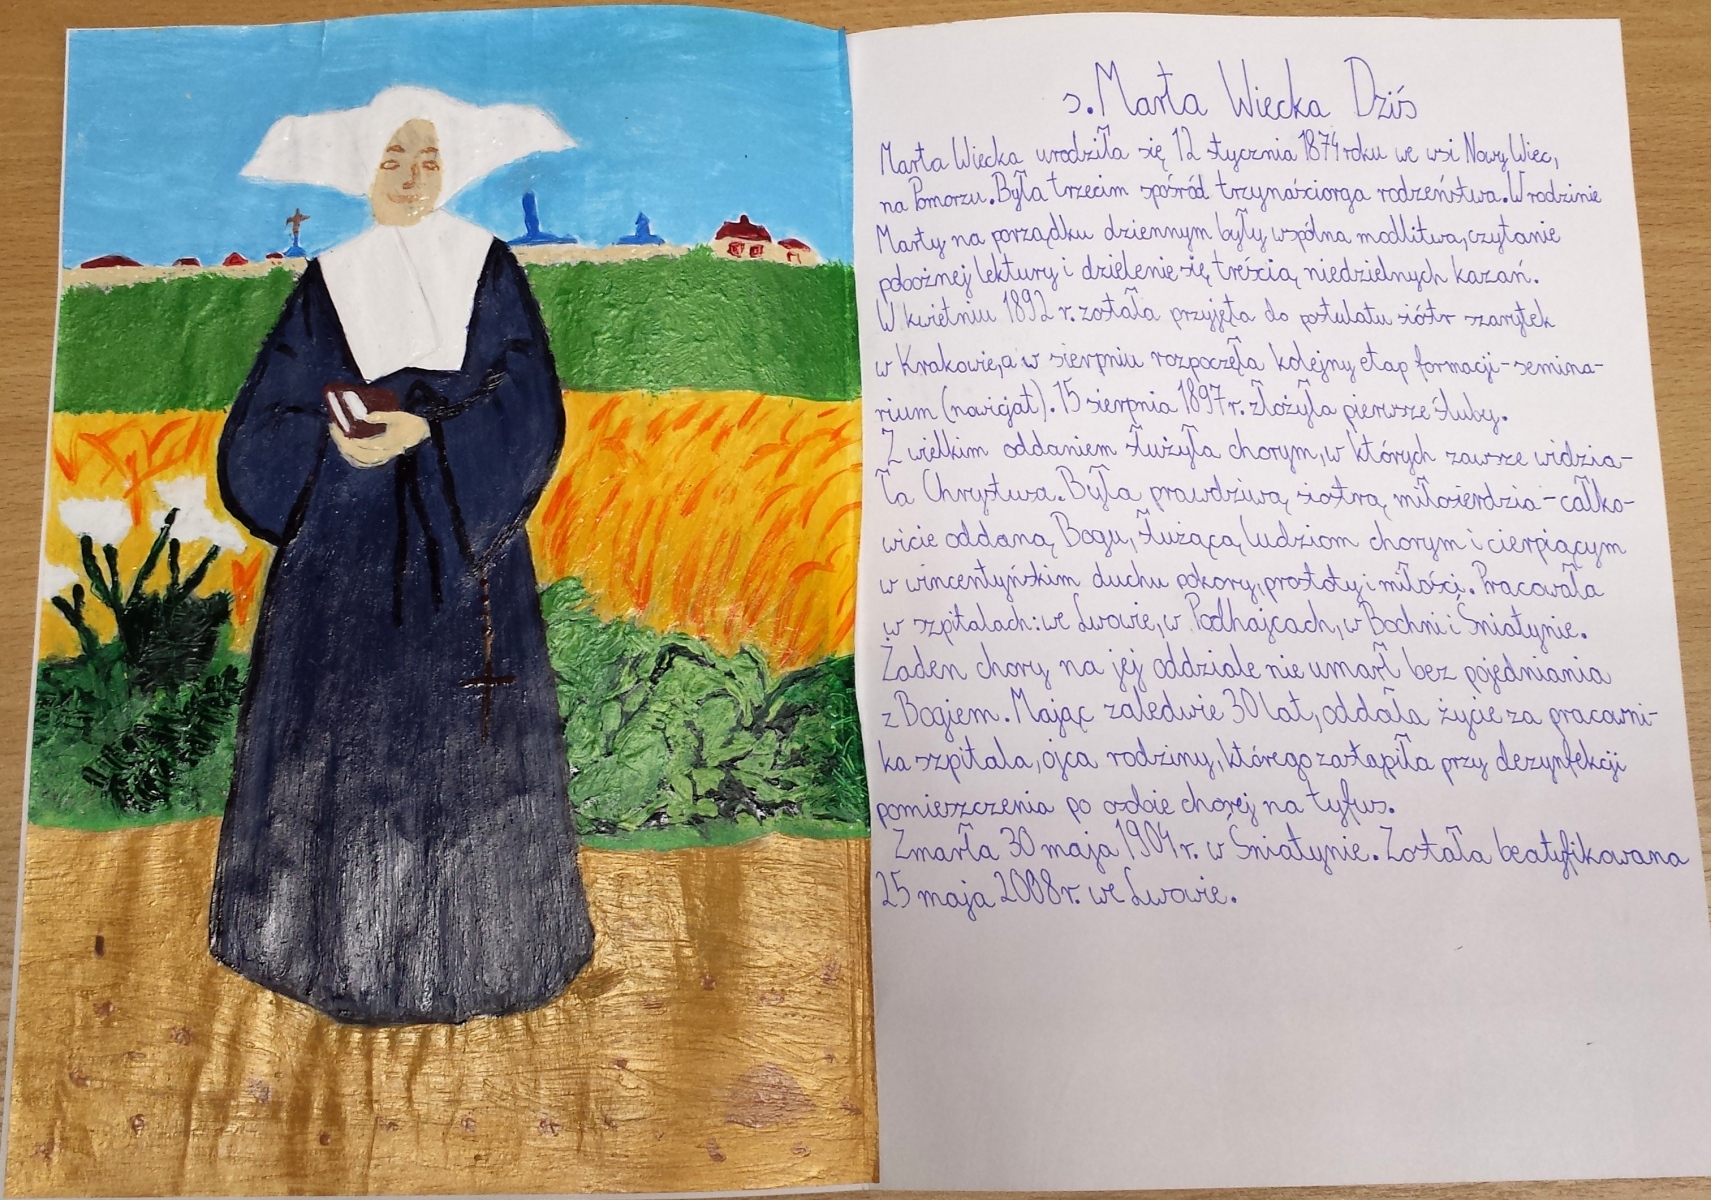 s. Marta Wiecka Dziś
Marta Wiecka urodziła się 12 stycznia 1874 roku we wsi Nowy Wiec,
na Pomorzu. Była trzecim spośród trzynaściorga rodzeństwa. W rodzinie
Marty na porządku dziennym były wspólna modlitwa, czytanie
pobożnej lektury i dzielenie się treścią niedzielnych kazań.
W kwietniu 1892 r. została przyjęta do postulatu sióstr szarytek
w Krakowie, a w sierpniu rozpoczęła kolejny etap formacji - semina-
rium (nowicjat). 15 sierpnia 1897 r. złożyła pierwsze śluby.
Z wielkim oddaniem służyła chorym, w których zawsze widzia-
ła Chrystusa. Była prawdziwą siostrą miłosierdzia - całko-
wicie oddaną Bogu, służącą ludziom chorym i cierpiącym
w wincentyńskim duchu pokory, prostoty i miłości. Pracowała
w szpitalach: we Lwowie, w Podhajcach, w Bochni i Śniatynie.
Żaden chory na jej oddziale nie umarł bez pojedniania
z Bogiem. Mając zaledwie 30 lat, oddała życie za pracowni-
ka szpitala, ojca rodziny, którego zastąpiła przy dezynfekcji
pomieszczenia po osobie chorej na tyfus.
Zmarła 30 maja 1904 r. w Śniatynie. Została beatyfikowana
25 maja 2008 r. we Lwowie.